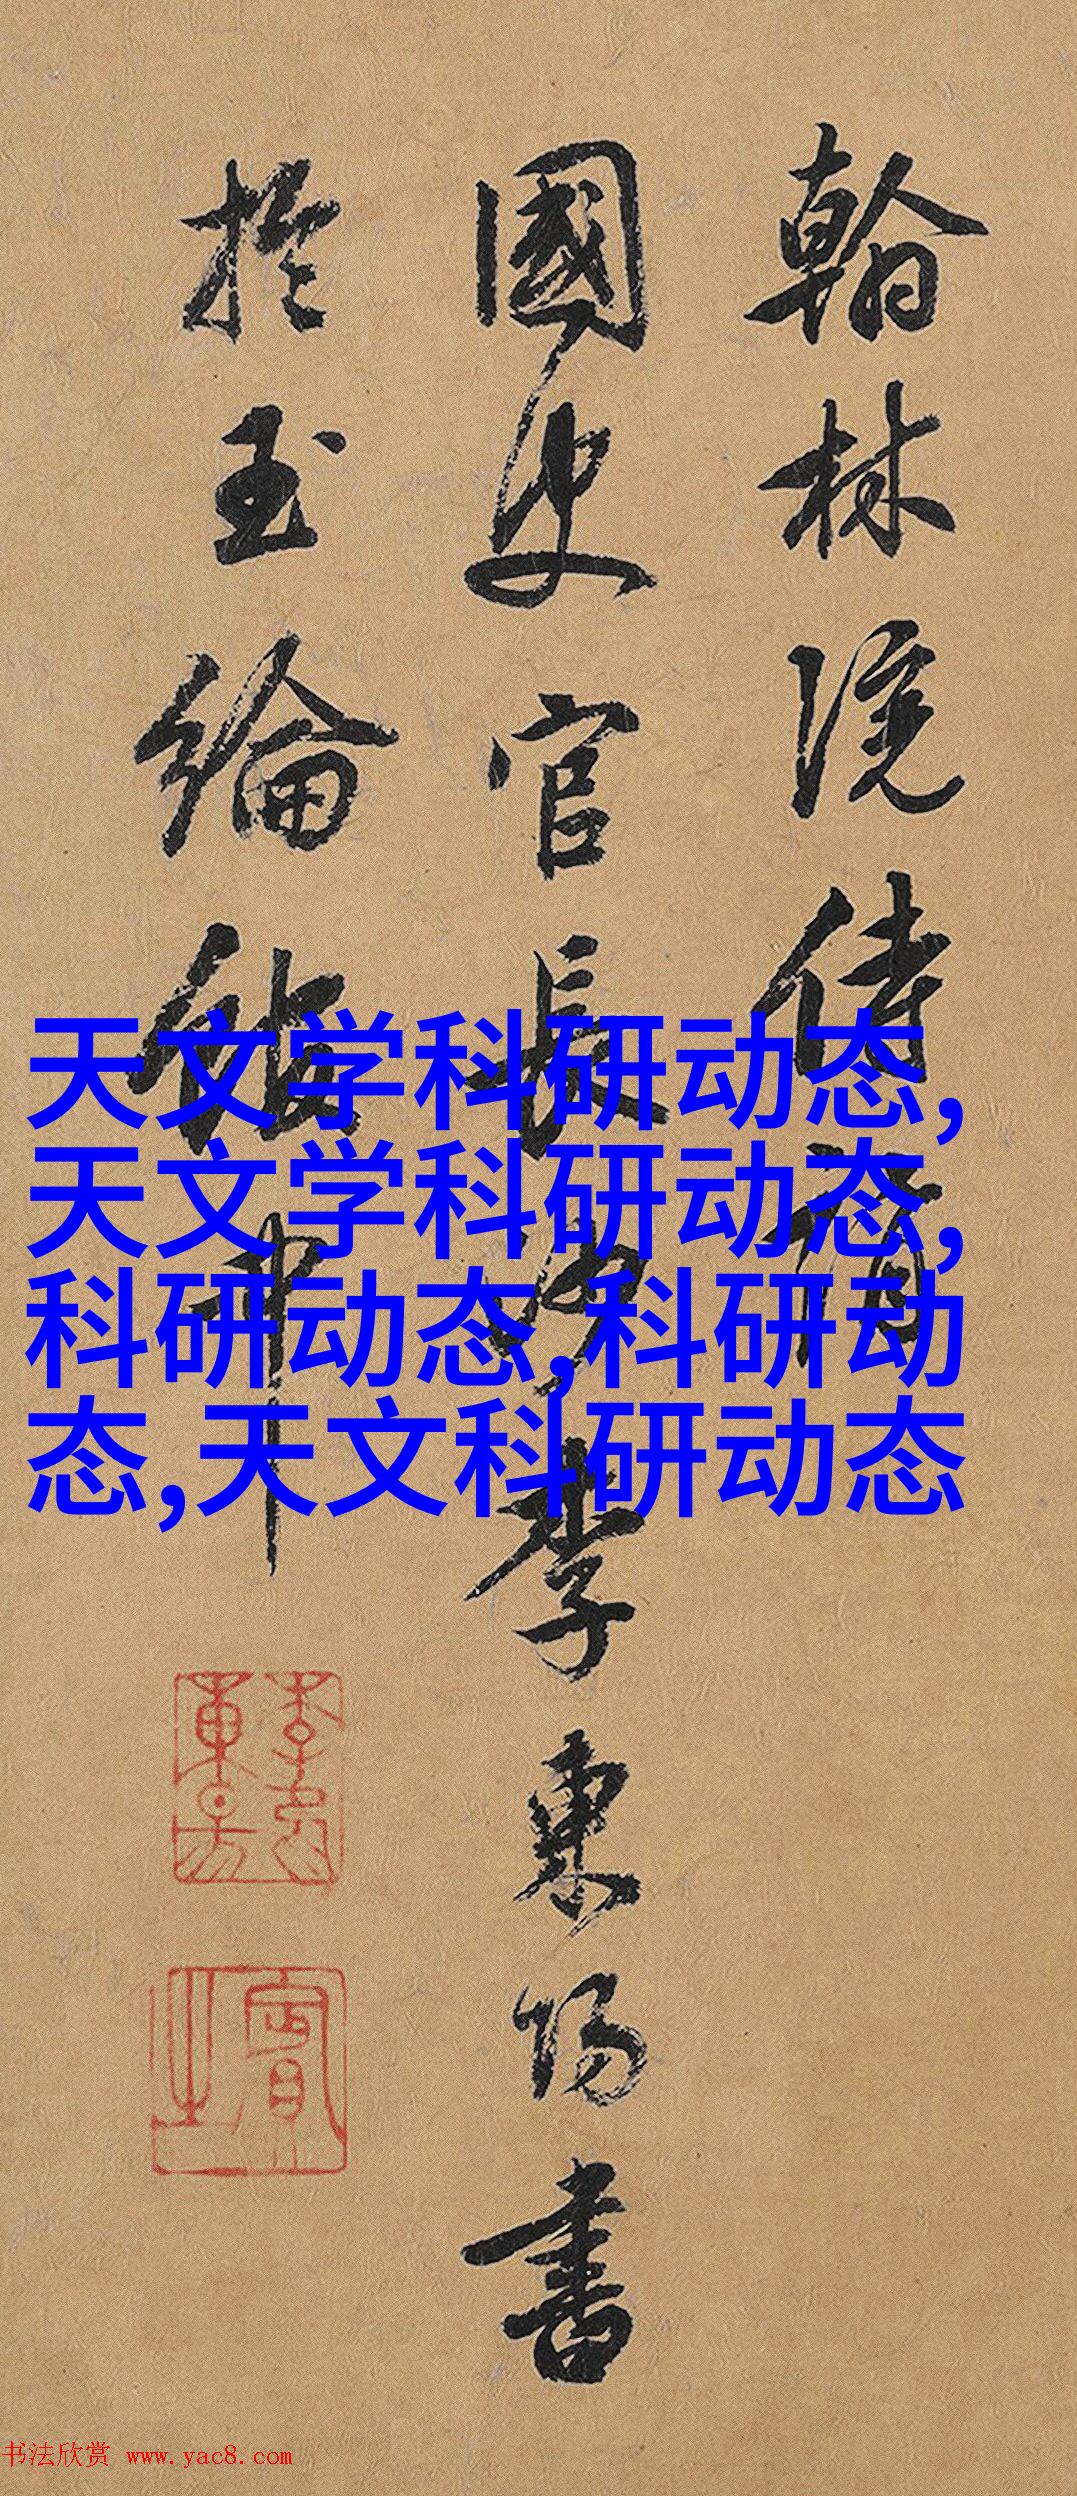 翰林院侍講
國史官長沙李東陽書
於玉綸中
天文学科研动态,
天文学科研动态,
科研动态,科研动
态,天文科研动态
賓之
书法欣赏 www.yac8.com